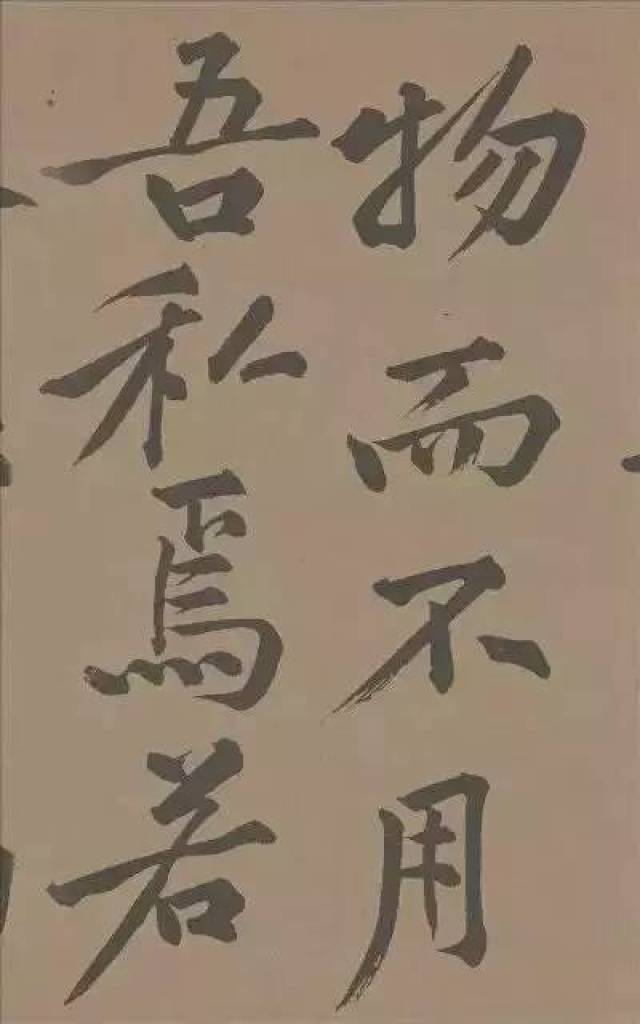 物而不用
吾私焉若